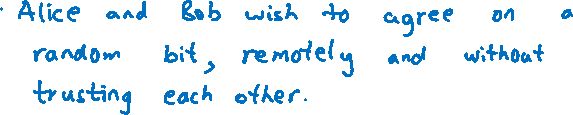 · Alice and Bob wish to agree on a
random bit, remotely and without
trusting each other.